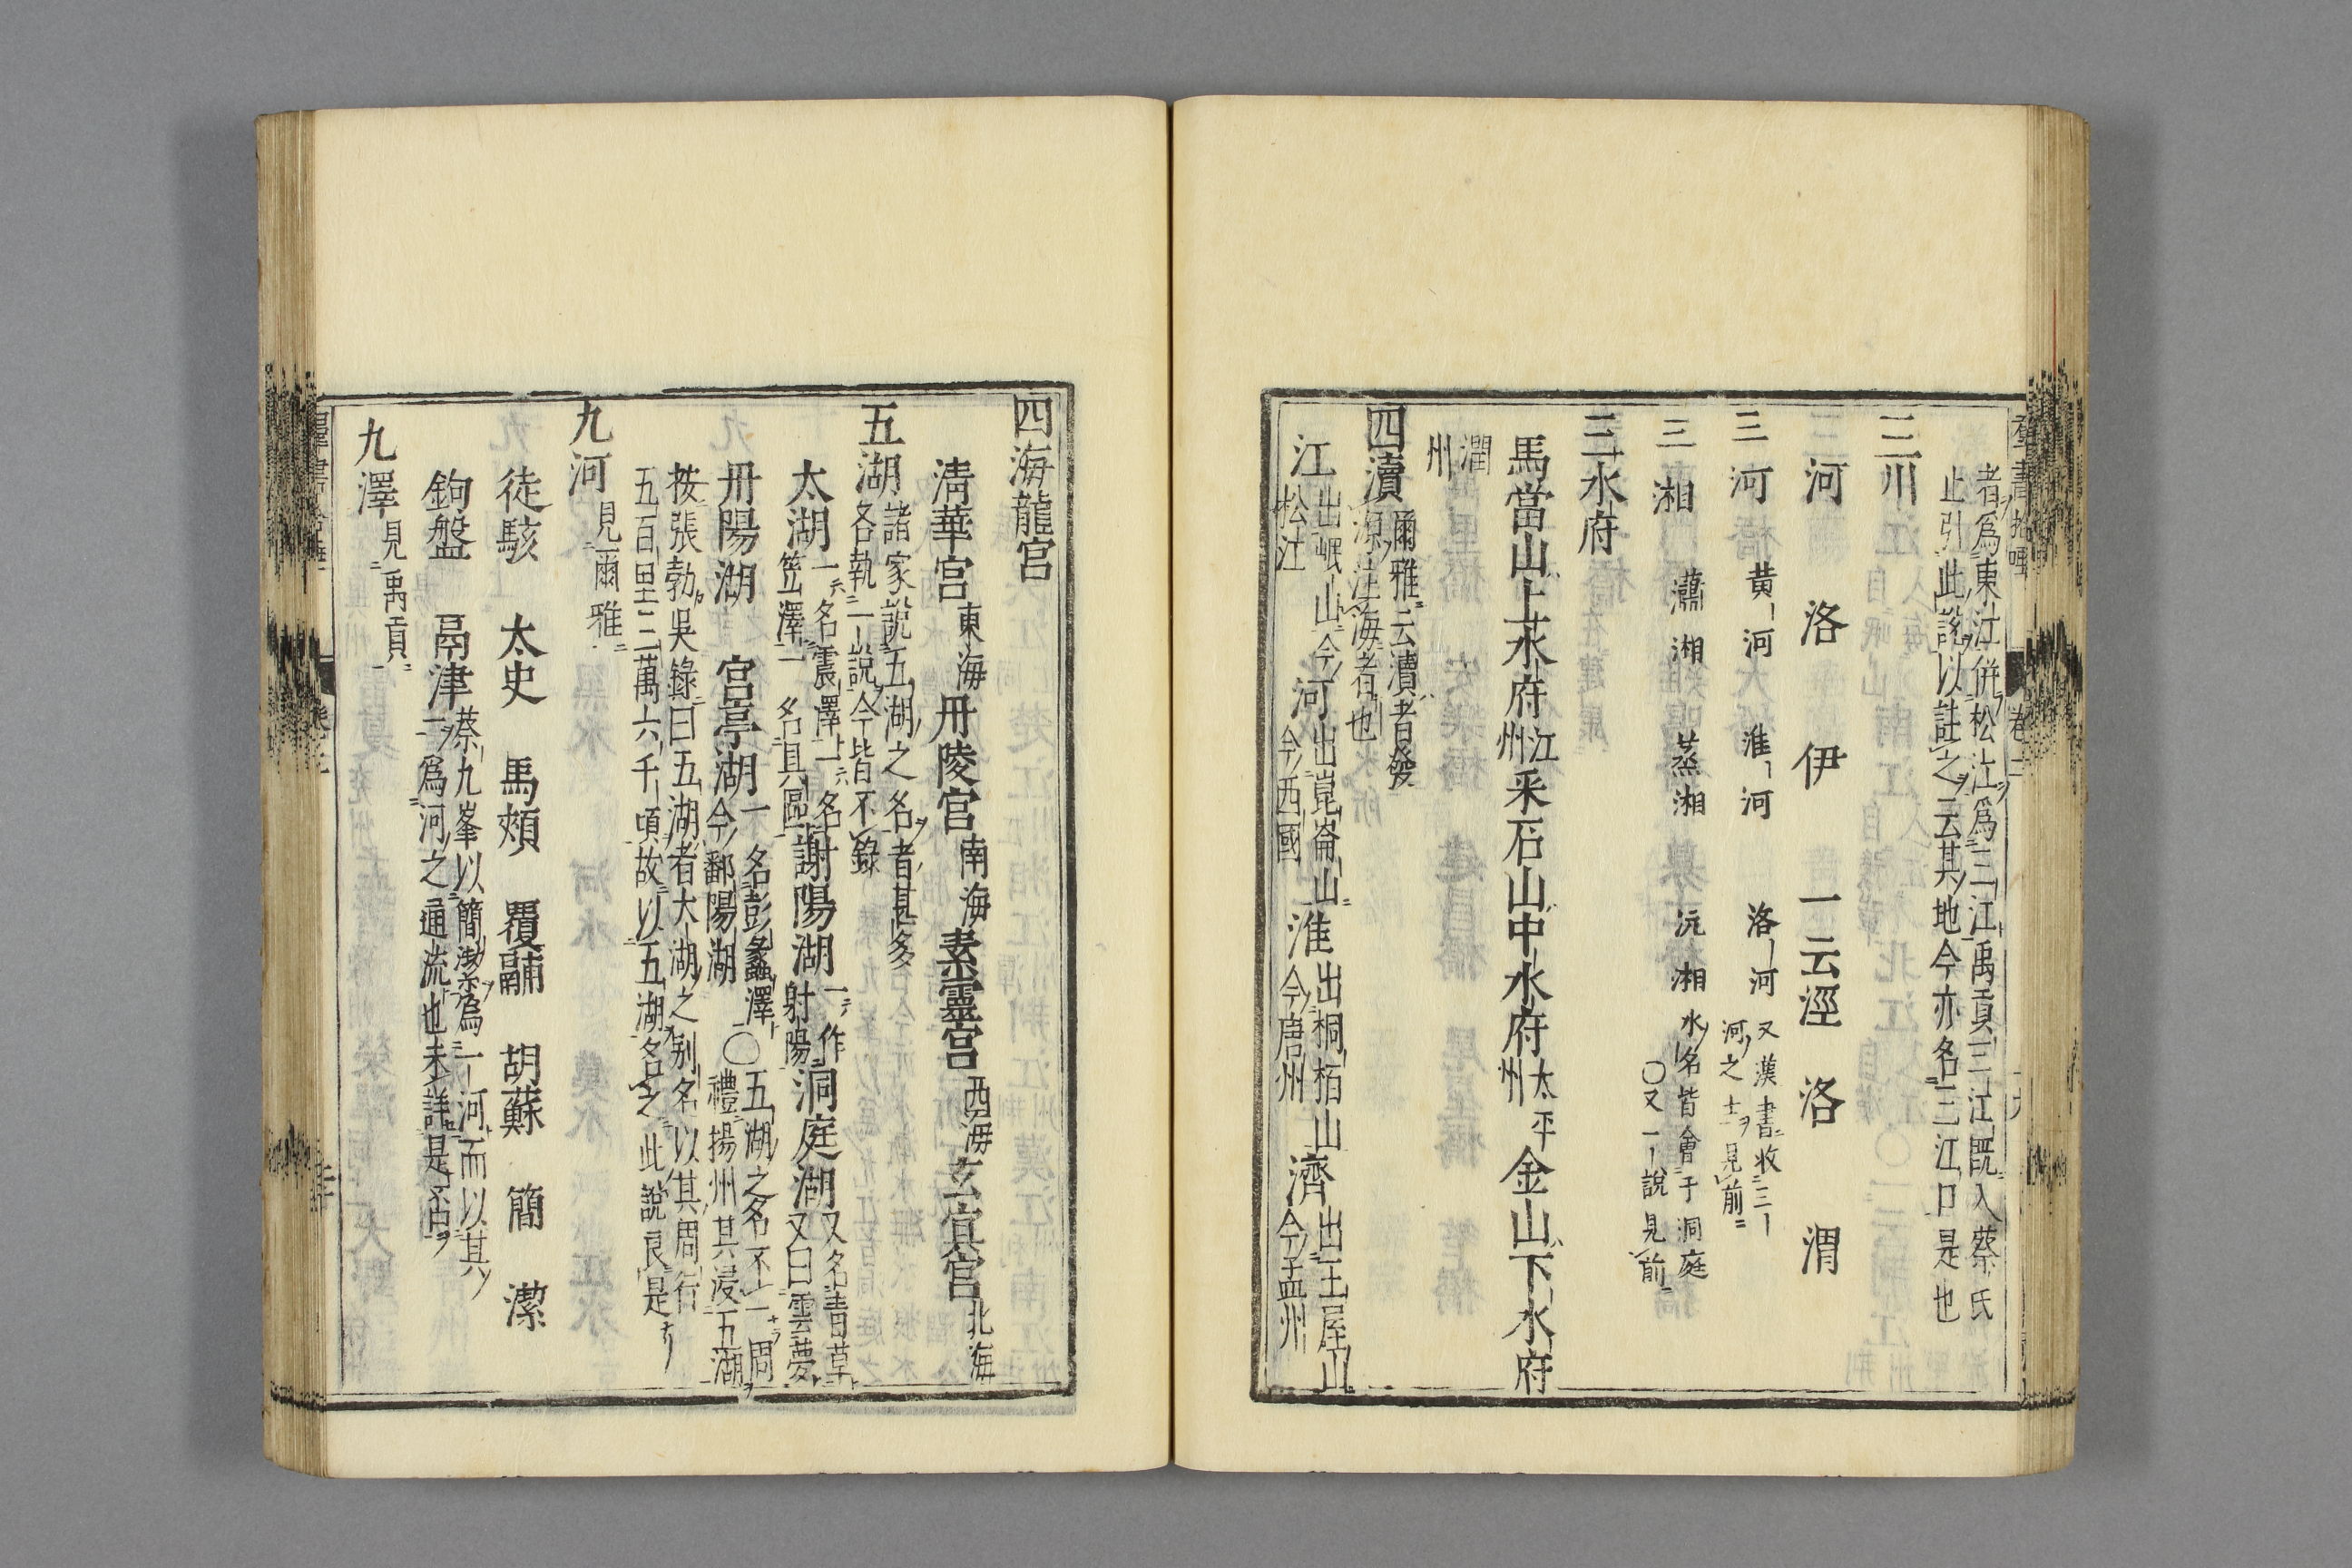 者爲東江併松江爲三江禹貢三江既入蔡氏
止引此說以註之云其地今亦名三江口是也
三川
河 洛 伊 一云涇 洛 渭
三河 黄河 淮河 洛河 又漢書收三
河之士見前
三湘 瀟湘 蒸湘 沅湘 水名皆會于洞庭
〇又一說見前
三水府
馬當山上水府江州采石山中水府太平州金山下水府
潤州
四瀆 爾雅云瀆者發
源注海者也
江 出岷山今松江 河 出崑崙山今西國 淮 出桐栢山今唐州 濟 出王屋山今孟州
四海龍宮
淸華宮東海 丹陵宮南海 素靈宮西海 玄冥宮北海
五湖 諸家說五湖之名者甚多
各執一說今皆不錄
太湖 一名震澤一名笠澤一名具區 謝陽湖 一作射陽 洞庭湖 又名青草又曰雲夢
丹陽湖 宮亭湖 一名彭蠡澤今鄱陽湖 〇五湖之名不一周禮揚州其浸五湖
按張勃吳錄曰五湖者太湖之别名以其周行
五百里三萬六千頃故以五湖名之此說良是
九河 見爾雅
徒駭 太史 馬頰 覆鬴 胡蘇 簡 潔
鉤盤 鬲津 蔡九峯以簡潔爲一河而以其
一爲河之通流也未詳是否
九澤 見禹貢